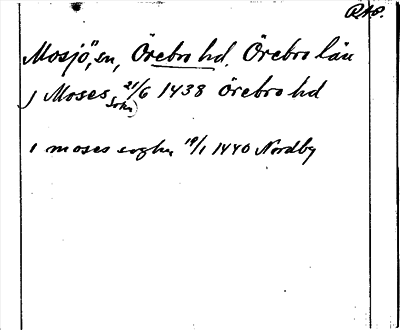 RAP.
Mosjö, sn, Örebro hd. Örebro län
J Moses sokn 21/6 1438 Örebro hd
i moses soghn 19/1 1440 Nordby